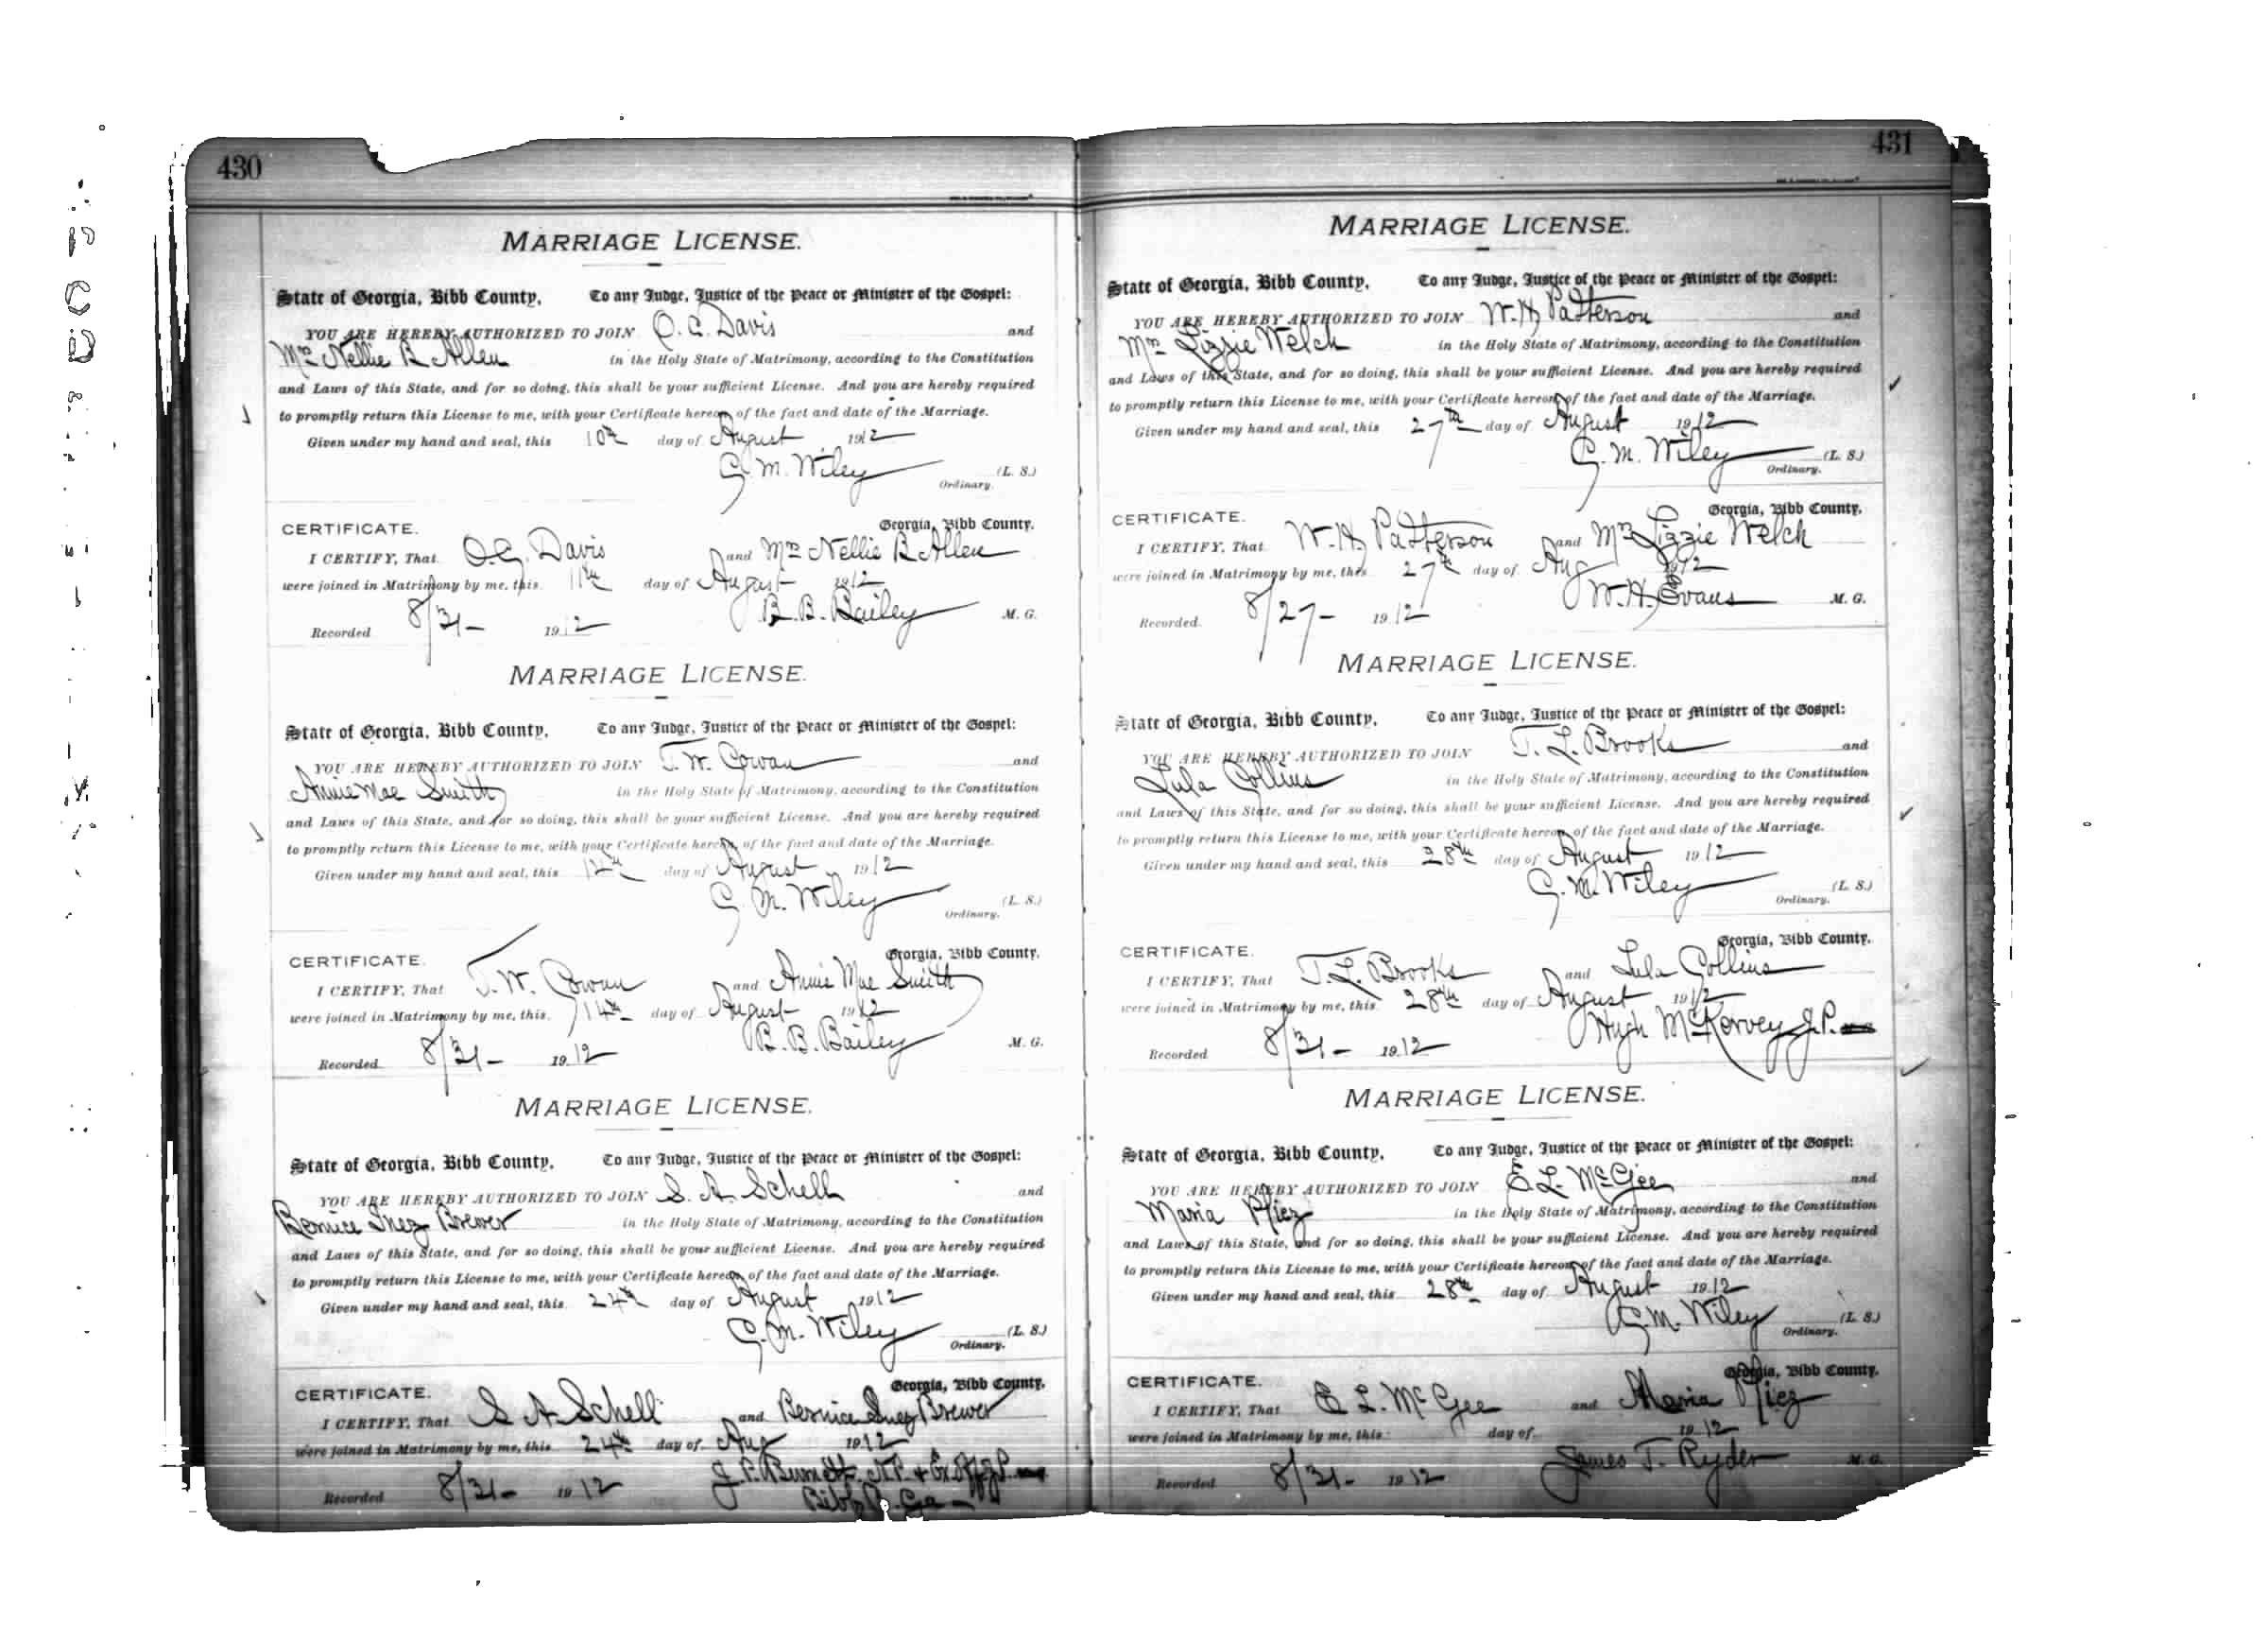 430
MARRIAGE LICENSE.
State of Georgia, Bibb County, To any Judge, Justice of the Peace or Minister of the Gospel:
YOU ARE HEREBY AUTHORIZED TO JOIN O. G. Davis and
Mrs Nellie B Allen in the Holy State of Matrimony, according to the Constitution
and Laws of this State, and for so doing, this shall be your sufficient License. And you are hereby required
to promptly return this License to me, with your Certificate hereon of the fact and date of the Marriage.
Given under my hand and seal, this 10th day of August 1912
C. M. Wiley (L. S.)
Ordinary.
CERTIFICATE. Georgia, Bibb County.
I CERTIFY, That O.G. Davis and Mrs Nellie B Allen
were joined in Matrimony by me, this 11th day of August 1912
Recorded 8/31- 1912 B. B. Bailey M. G.
MARRIAGE LICENSE.
State of Georgia, Bibb County, To any Judge, Justice of the Peace or Minister of the Gospel:
YOU ARE HEREBY AUTHORIZED TO JOIN T. W. Cowan and
Annie Mae Smith in the Holy State of Matrimony, according to the Constitution
and Laws of this State, and for so doing, this shall be your sufficient License. And you are hereby required
to promptly return this License to me, with your Certificate hereon of the fact and date of the Marriage.
Given under my hand and seal, this 12th day of August 1912
C. M. Wiley (L. S.)
Ordinary.
CERTIFICATE. Georgia, Bibb County.
I CERTIFY, That T. W. Cowan and Annie Mae Smith
were joined in Matrimony by me, this 14th day of August 1912
Recorded 8/31- 1912 B. B. Bailey M. G.
MARRIAGE LICENSE.
State of Georgia, Bibb County, To any Judge, Justice of the Peace or Minister of the Gospel:
YOU ARE HEREBY AUTHORIZED TO JOIN S. A. Schell and
Bernice Inez Brewer in the Holy State of Matrimony, according to the Constitution
and Laws of this State, and for so doing, this shall be your sufficient License. And you are hereby required
to promptly return this License to me, with your Certificate hereon of the fact and date of the Marriage.
Given under my hand and seal, this 24th day of August 1912
C. M. Wiley (L. S.)
Ordinary.
CERTIFICATE. Georgia, Bibb County.
I CERTIFY, That S A Schell and Bernice Inez Brewer
were joined in Matrimony by me, this 24th day of Aug 1912
J. P. Burnett, N.P. & Ex. Off J.P.
Recorded 8/31- 1912 Bibb Co. Ga
431
MARRIAGE LICENSE.
State of Georgia, Bibb County, To any Judge, Justice of the Peace or Minister of the Gospel:
YOU ARE HEREBY AUTHORIZED TO JOIN W. H. Patterson and
Mrs Lizzie Welch in the Holy State of Matrimony, according to the Constitution
and Laws of this State, and for so doing, this shall be your sufficient License. And you are hereby required
to promptly return this License to me, with your Certificate hereon of the fact and date of the Marriage.
Given under my hand and seal, this 27th day of August 1912
C. M. Wiley (L. S.)
Ordinary.
CERTIFICATE. Georgia, Bibb County.
I CERTIFY, That W. H. Patterson and Mrs Lizzie Welch
were joined in Matrimony by me, this 27th day of Aug 1912
Recorded 8/27- 1912 W. H. Evans M. G.
MARRIAGE LICENSE.
State of Georgia, Bibb County, To any Judge, Justice of the Peace or Minister of the Gospel:
YOU ARE HEREBY AUTHORIZED TO JOIN T. L. Brooks and
Lula Collins in the Holy State of Matrimony, according to the Constitution
and Laws of this State, and for so doing, this shall be your sufficient License. And you are hereby required
to promptly return this License to me, with your Certificate hereon of the fact and date of the Marriage.
Given under my hand and seal, this 28th day of August 1912
C. M. Wiley (L. S.)
Ordinary.
CERTIFICATE. Georgia, Bibb County.
I CERTIFY, That T. L. Brooks and Lula Collins
were joined in Matrimony by me, this 28th day of August 1912
Recorded 8/31- 1912 Hugh McKervey J.P.
MARRIAGE LICENSE.
State of Georgia, Bibb County, To any Judge, Justice of the Peace or Minister of the Gospel:
YOU ARE HEREBY AUTHORIZED TO JOIN E. L. McGee and
Maria Pliez in the Holy State of Matrimony, according to the Constitution
and Laws of this State, and for so doing, this shall be your sufficient License. And you are hereby required
to promptly return this License to me, with your Certificate hereon of the fact and date of the Marriage.
Given under my hand and seal, this 28th day of August 1912
C. M. Wiley (L. S.)
Ordinary.
CERTIFICATE. Georgia, Bibb County.
I CERTIFY, That E L. McGee and Maria Pliez
were joined in Matrimony by me, this day of 1912
Recorded 8/31- 1912 James T. Ryder M. G.